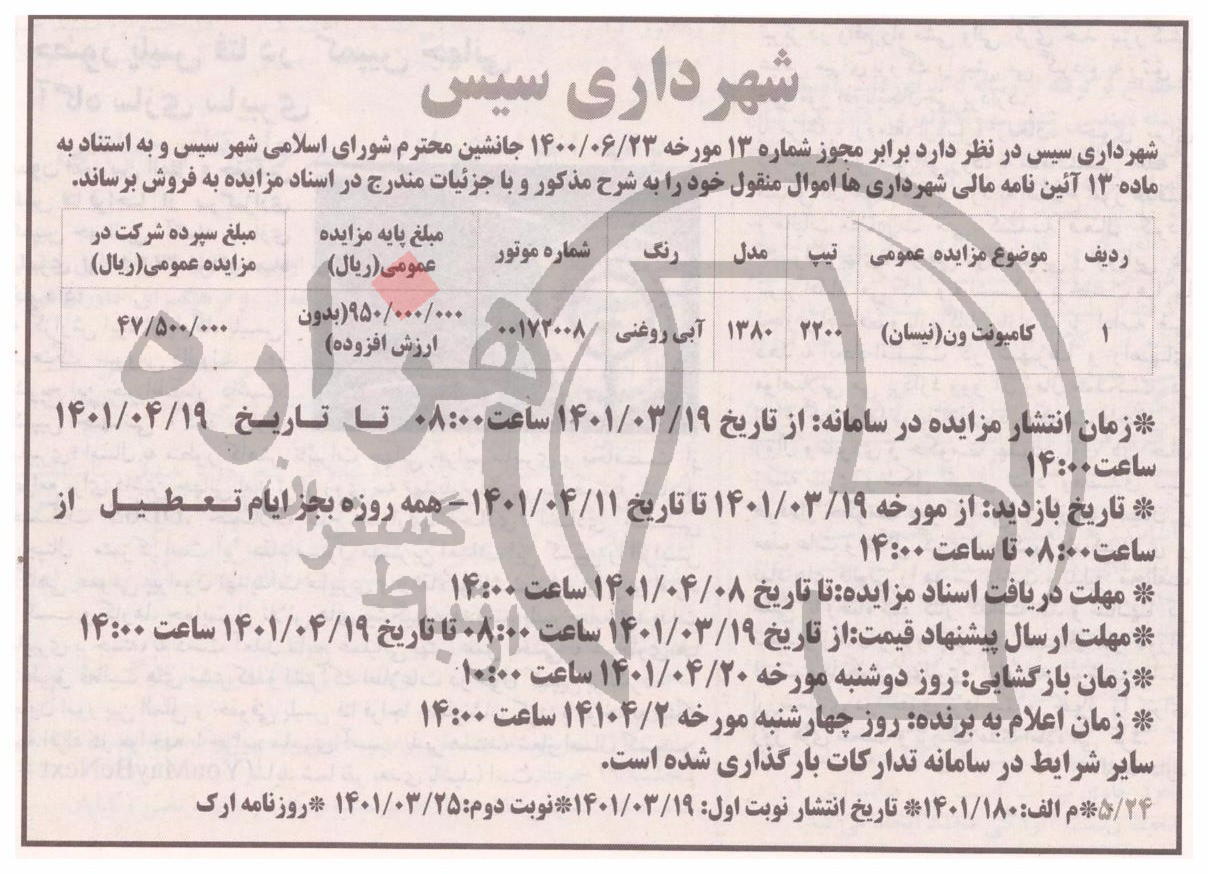 شهرداری سیس
شهرداری سیس در نظر دارد برابر مجوز شماره ۱۳ مورخه ۱۴۰۰/۰۶/۲۳ جانشین محترم شورای اسلامی شهر سیس و به استناد به
ماده ۱۳ آئین نامه مالی شهرداری ها اموال منقول خود را به شرح مذکور و با جزئیات مندرج در اسناد مزایده به فروش برساند.
ردیف موضوع مزایده عمومی تیپ مدل رنگ شماره موتور مبلغ پایه مزایده عمومی(ریال) مبلغ سپرده شرکت در مزایده عمومی(ریال)
۱ کامیونت ون(نیسان) ۲۲۰۰ ۱۳۸۰ آبی روغنی ۰۰۱۷۲۰۰۸ ۹۵۰/۰۰۰/۰۰۰(بدون ارزش افزوده) ۴۷/۵۰۰/۰۰۰
*زمان انتشار مزایده در سامانه: از تاریخ ۱۴۰۱/۰۳/۱۹ ساعت۰۸:۰۰ تا تاریخ ۱۴۰۱/۰۴/۱۹
ساعت۱۴:۰۰
* تاریخ بازدید: از مورخه ۱۴۰۱/۰۳/۱۹ تا تاریخ ۱۴۰۱/۰۴/۱۱- همه روزه بجز ایام تعطیل از
ساعت۰۸:۰۰ تا ساعت ۱۴:۰۰
* مهلت دریافت اسناد مزایده:تا تاریخ ۱۴۰۱/۰۴/۰۸ ساعت ۱۴:۰۰
*مهلت ارسال پیشنهاد قیمت:از تاریخ ۱۴۰۱/۰۳/۱۹ ساعت ۰۸:۰۰ تا تاریخ ۱۴۰۱/۰۴/۱۹ ساعت ۱۴:۰۰
*زمان بازگشایی: روز دوشنبه مورخه ۱۴۰۱/۰۴/۲۰ ساعت ۱۰:۰۰
* زمان اعلام به برنده: روز چهارشنبه مورخه ۱۴۱۰۴/۲ ساعت ۱۴:۰۰
سایر شرایط در سامانه تدارکات بارگذاری شده است.
۵/۲۴*م الف:۱۴۰۱/۱۸۰* تاریخ انتشار نوبت اول: ۱۴۰۱/۰۳/۱۹*نوبت دوم:۱۴۰۱/۰۳/۲۵ *روزنامه ارک
هزاره
گستر
ارتباط
YouMayBeNext